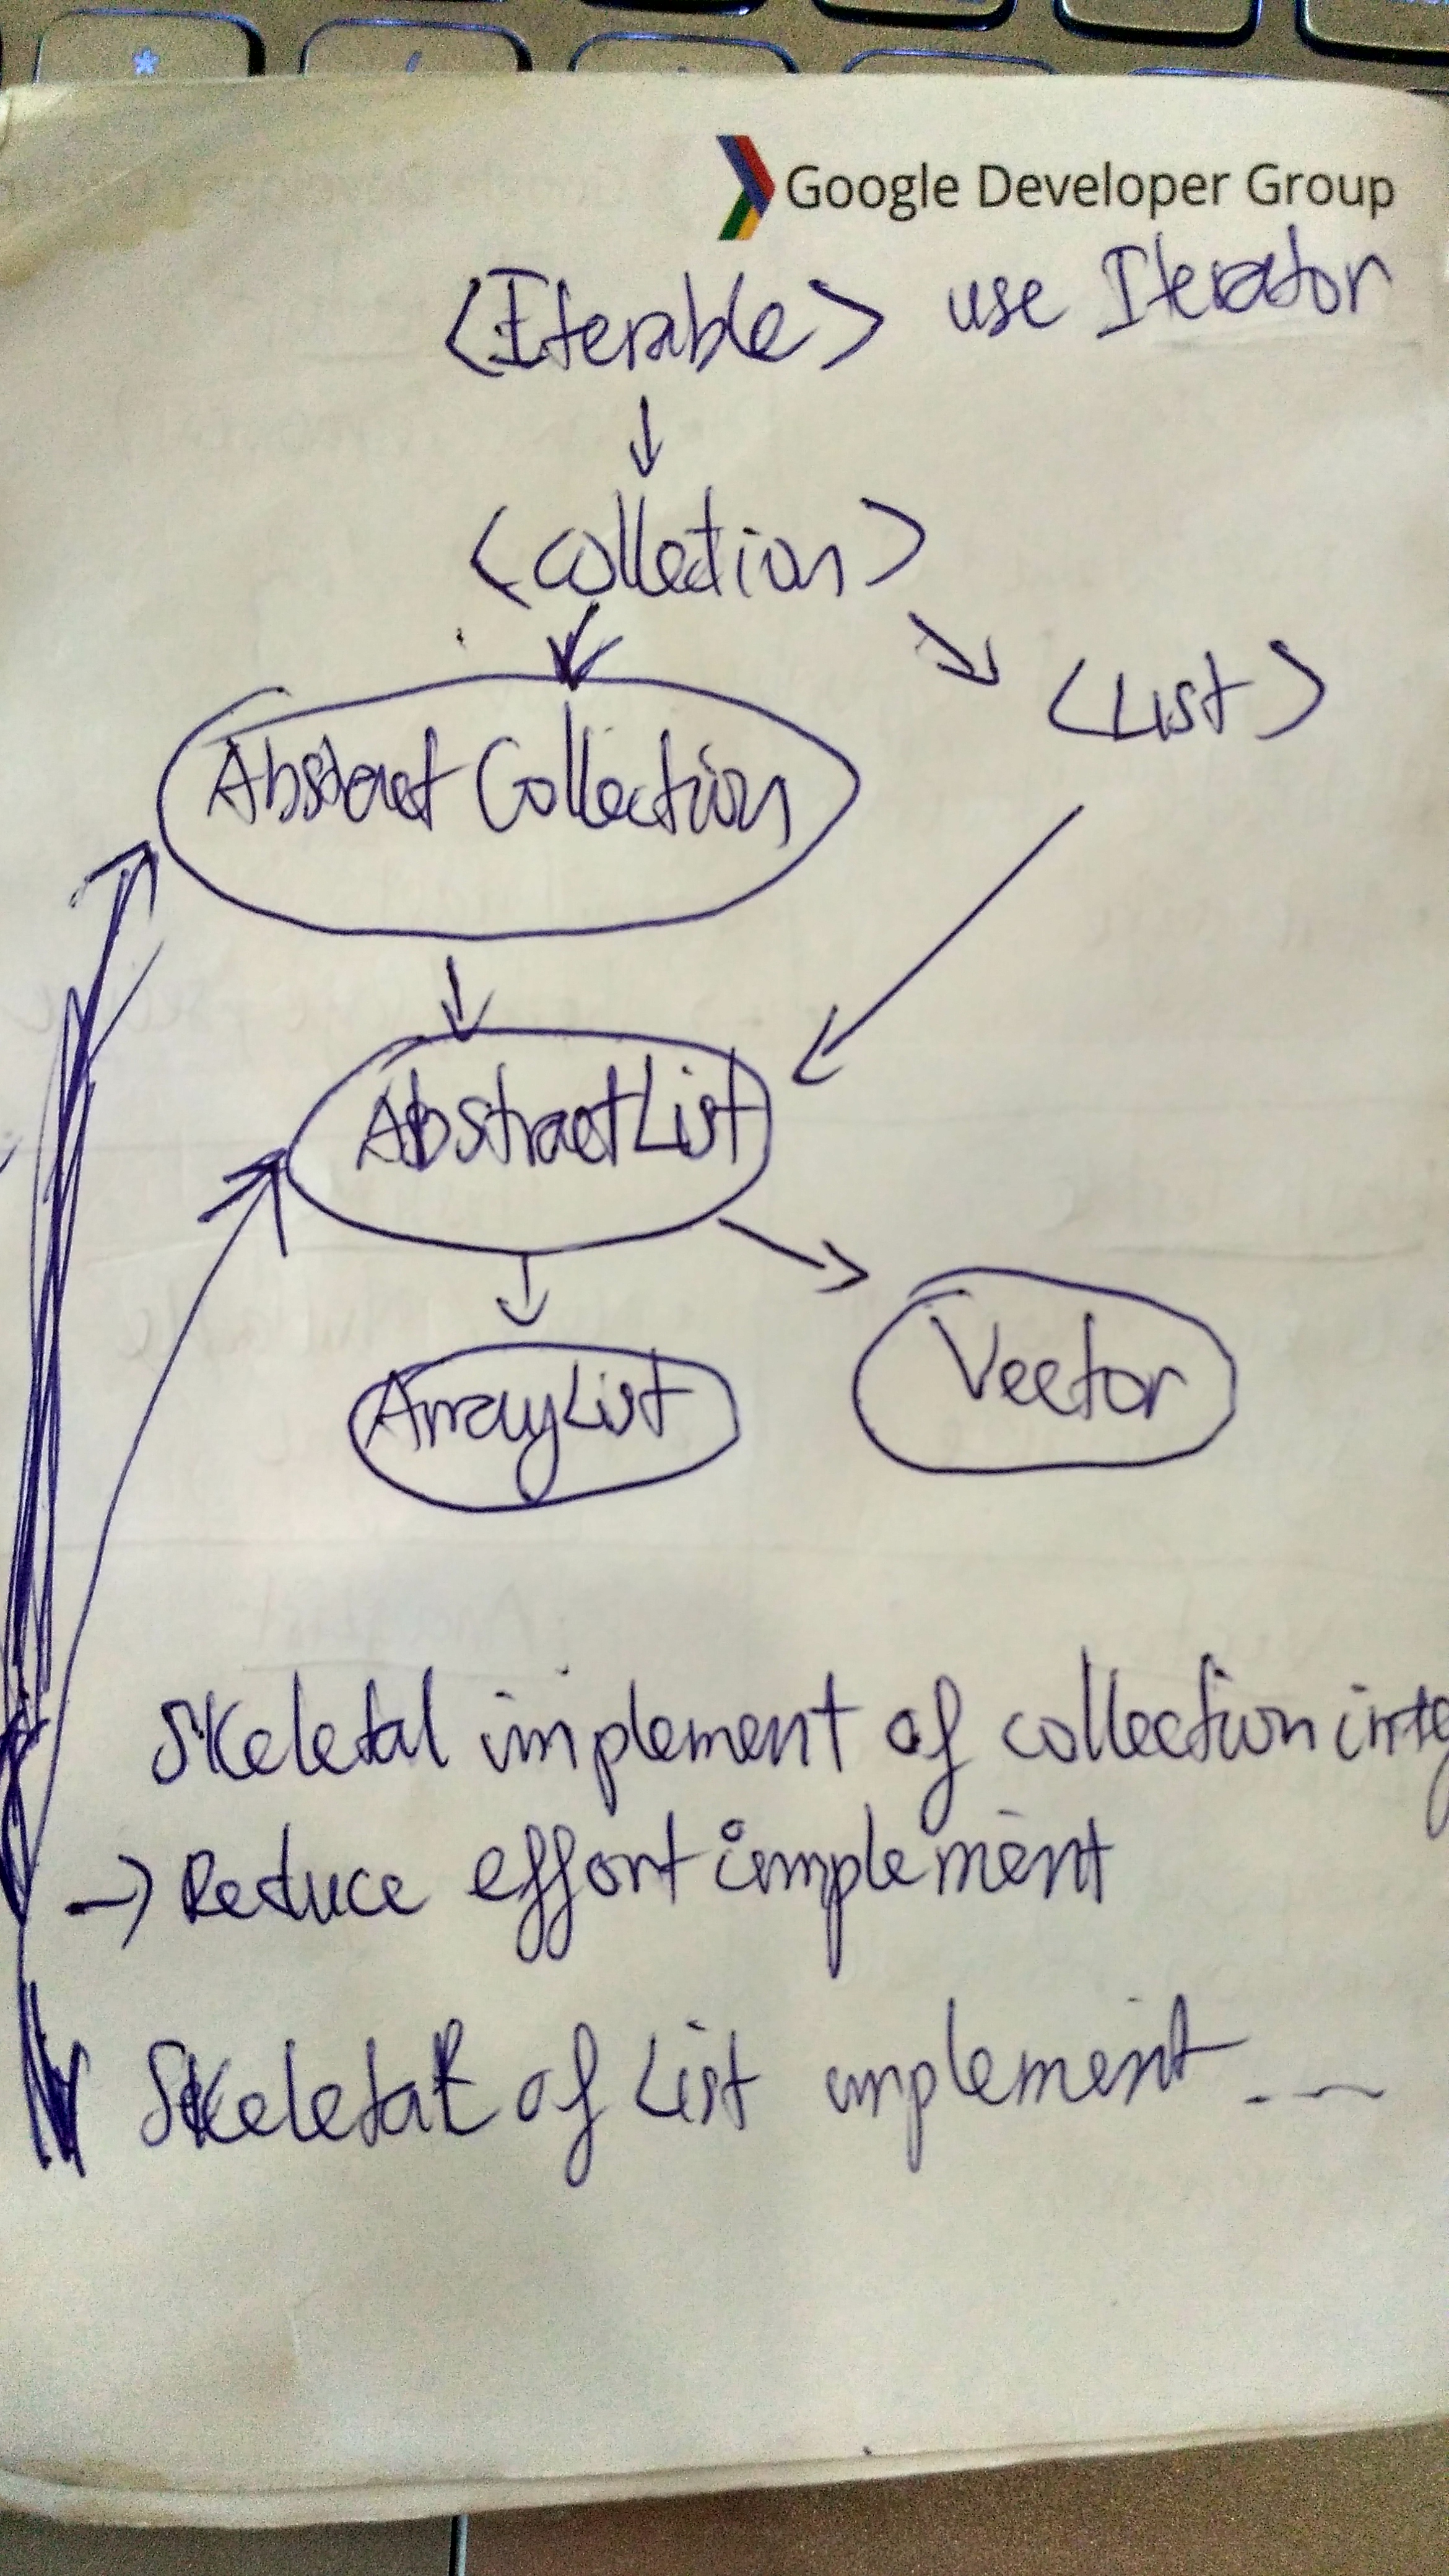 Google Developer Group
<Iterable> use Iterator
<Collection>
<List>
Abstract Collection
AbstractList
Vector
ArrayList
Skeletal implement of collection inte
→ Reduce effort implement
Skeletal of List implement ...